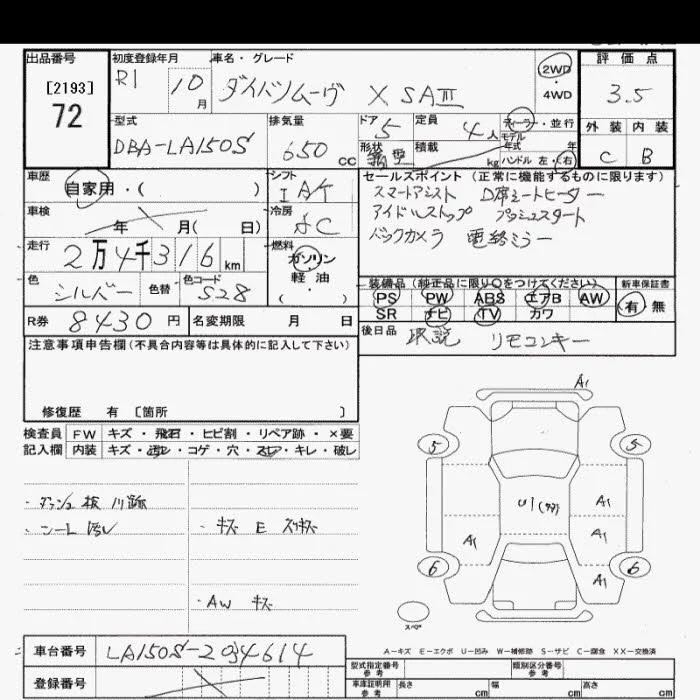 出品番号
[2193]
72
初度登録年月 R1 10月
車名・グレード ダイハツムーヴ X SAⅢ
2WD・4WD
評価点 3.5
型式 DBA-LA150S
排気量 650 cc
ドア 5
定員 4人
ディーラー・並行
モデル年式 年
形状
積載 kg
ハンドル 左・右
外装 内装
C B
車歴 自家用・( )
シフト IAT
セールスポイント (正常に機能するものに限ります)
スマートアシスト D席シートヒーター
アイドルストップ プッシュスタート
バックカメラ 電格ミラー
車検 年 月( 日)
冷房 AC
走行 2万4千316km
燃料 ガソリン・軽油・( )
色 シルバー 色替 色コード S28
装備品 (純正品に限り○をつけてください) 新車保証書
PS PW ABS エアB AW 有・無
SR ナビ TV カワ
R券 8430円 名変期限 月 日
後日品 取説 リモコンキー
注意事項申告欄(不具合内容等は具体的に記入して下さい)
修復歴 有 [箇所 ]
検査員 FW キズ・飛石・ヒビ割・リペア跡・×要
記入欄 内装 キズ・汚レ・コゲ・穴・スレ・キレ・破レ
シート汚レ
・キズ E スリキズ
・AW キズ
A1
5 5
U1
A1
A1 A1
A1
6 6
スペア
A-キズ E-エクボ U-凹み W-補修跡 S-サビ C-腐食 XX-交換済
車台番号 LA150S-2034614
登録番号
型式指定番号 参考 類別区分番号 参考
車庫証明用 参考 長さ cm 幅 cm 高さ cm